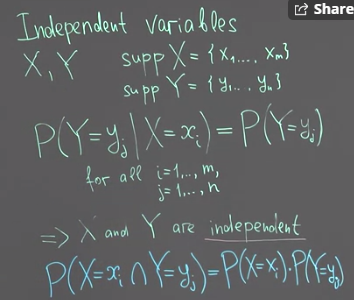 Share
Independent variables
X, Y supp X = {x₁..., xₘ}
supp Y = {y₁... yₙ}
P(Y=yⱼ | X=xᵢ) = P(Y=yⱼ)
for all i=1,.., m,
j=1,.., n
=> X and Y are independent
P(X=xᵢ ∩ Y=yⱼ)=P(X=xᵢ)·P(Y=yⱼ)